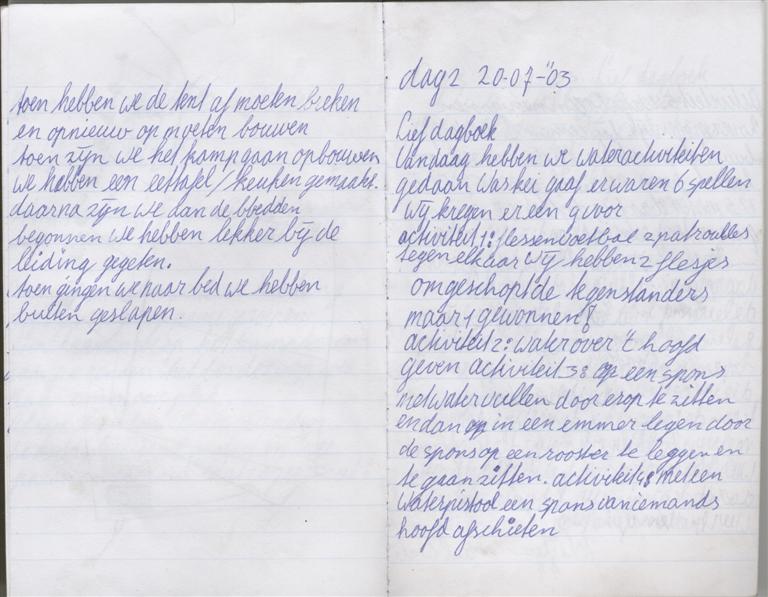 toen hebben we de tent af moeten breken
en opnieuw op moeten bouwen
toen zijn we het kamp gaan opbouwen
we hebben een eettafel / keuken gemaakt.
daarna zijn we aan de bedden
begonnen we hebben lekker bij de
leiding gegeten.
toen gingen we naar bed we hebben
buiten geslapen.
dag 2 20-07-'03
Lief dagboek
Vandaag hebben we wateractiviteiten
gedaan was kei gaaf er waren 6 spellen
wij kregen er een 9 voor
activiteit 1: flessenvoetbal 2 patroulles
tegen elkaar wij hebben 2 flesjes
omgeschopt de tegenstanders
maar 1 gewonnen!
activiteit 2: water over 't hoofd
geven activiteit 3: op een spons
met water vullen door erop te zitten
en dan op in een emmer legen door
de spons op een rooster te leggen en
te gaan zitten. activiteit 4: met een
waterpistool een spons van iemands
hoofd afschieten